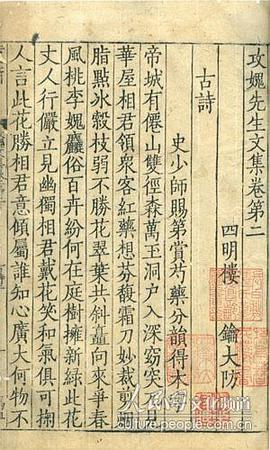 攻媿先生文集卷第二
四明樓　鑰大防
古詩
史少師賜第賞芍藥分韻得木
帝城有僊山雙徑森萬玉洞户入深窈突兀見
華屋相君領衆客紅藥想芬馥霜刀妙裁剪
脂點冰縠枝弱不勝花翠葉共斜矗向來爭春
風桃李媿麤俗百卉紛何在庭樹擁新綠此花
丈人行儼立見幽獨相君戴花笑和氣俱可掬
人言此花勝相君意傾屬誰知心廣大何物不
culture.people.com.cn